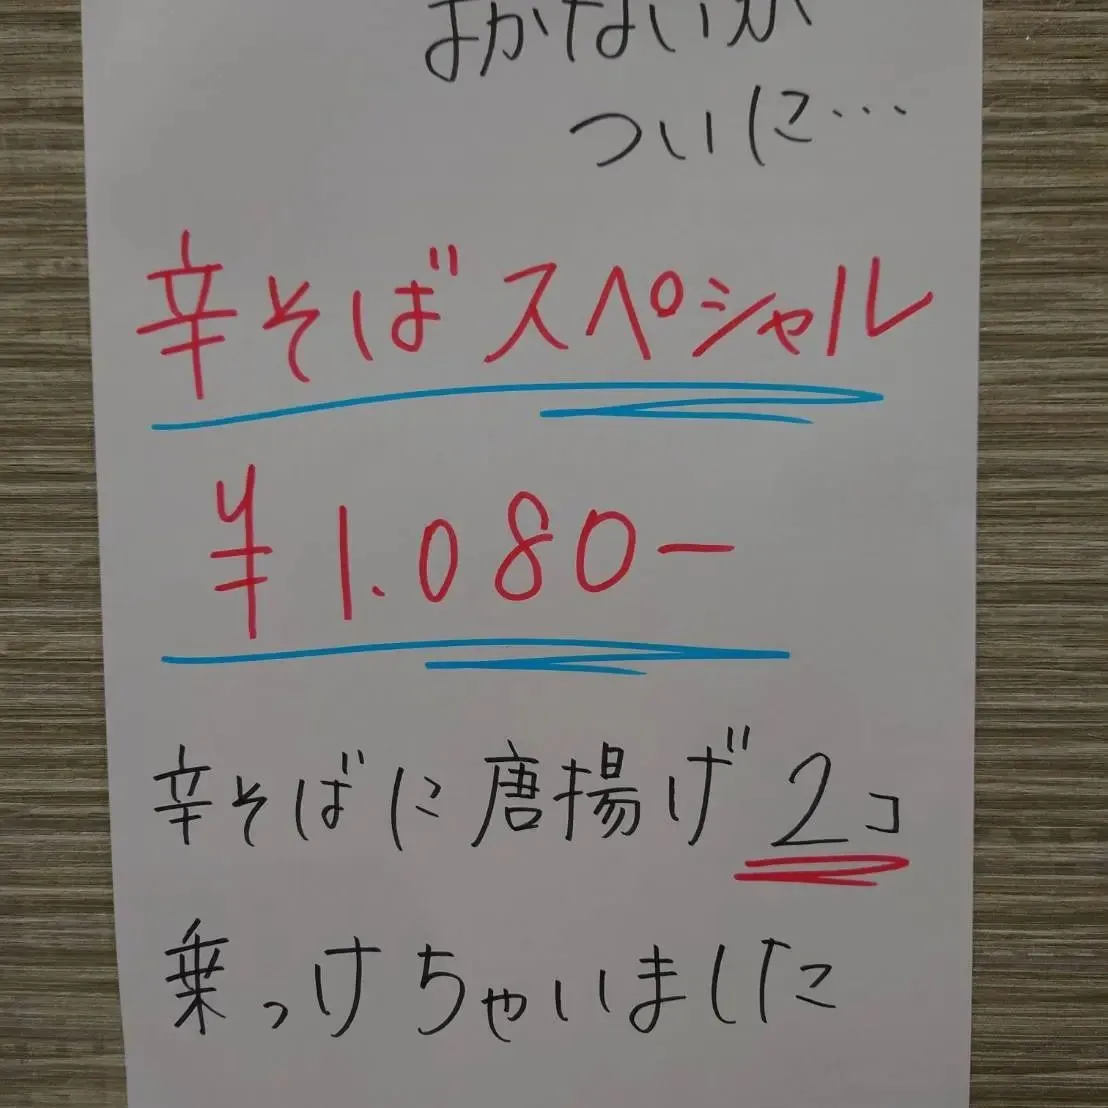 ついに…
辛そばスペシャル
¥1.080-
辛そばに唐揚げ2コ
乗っけちゃいました